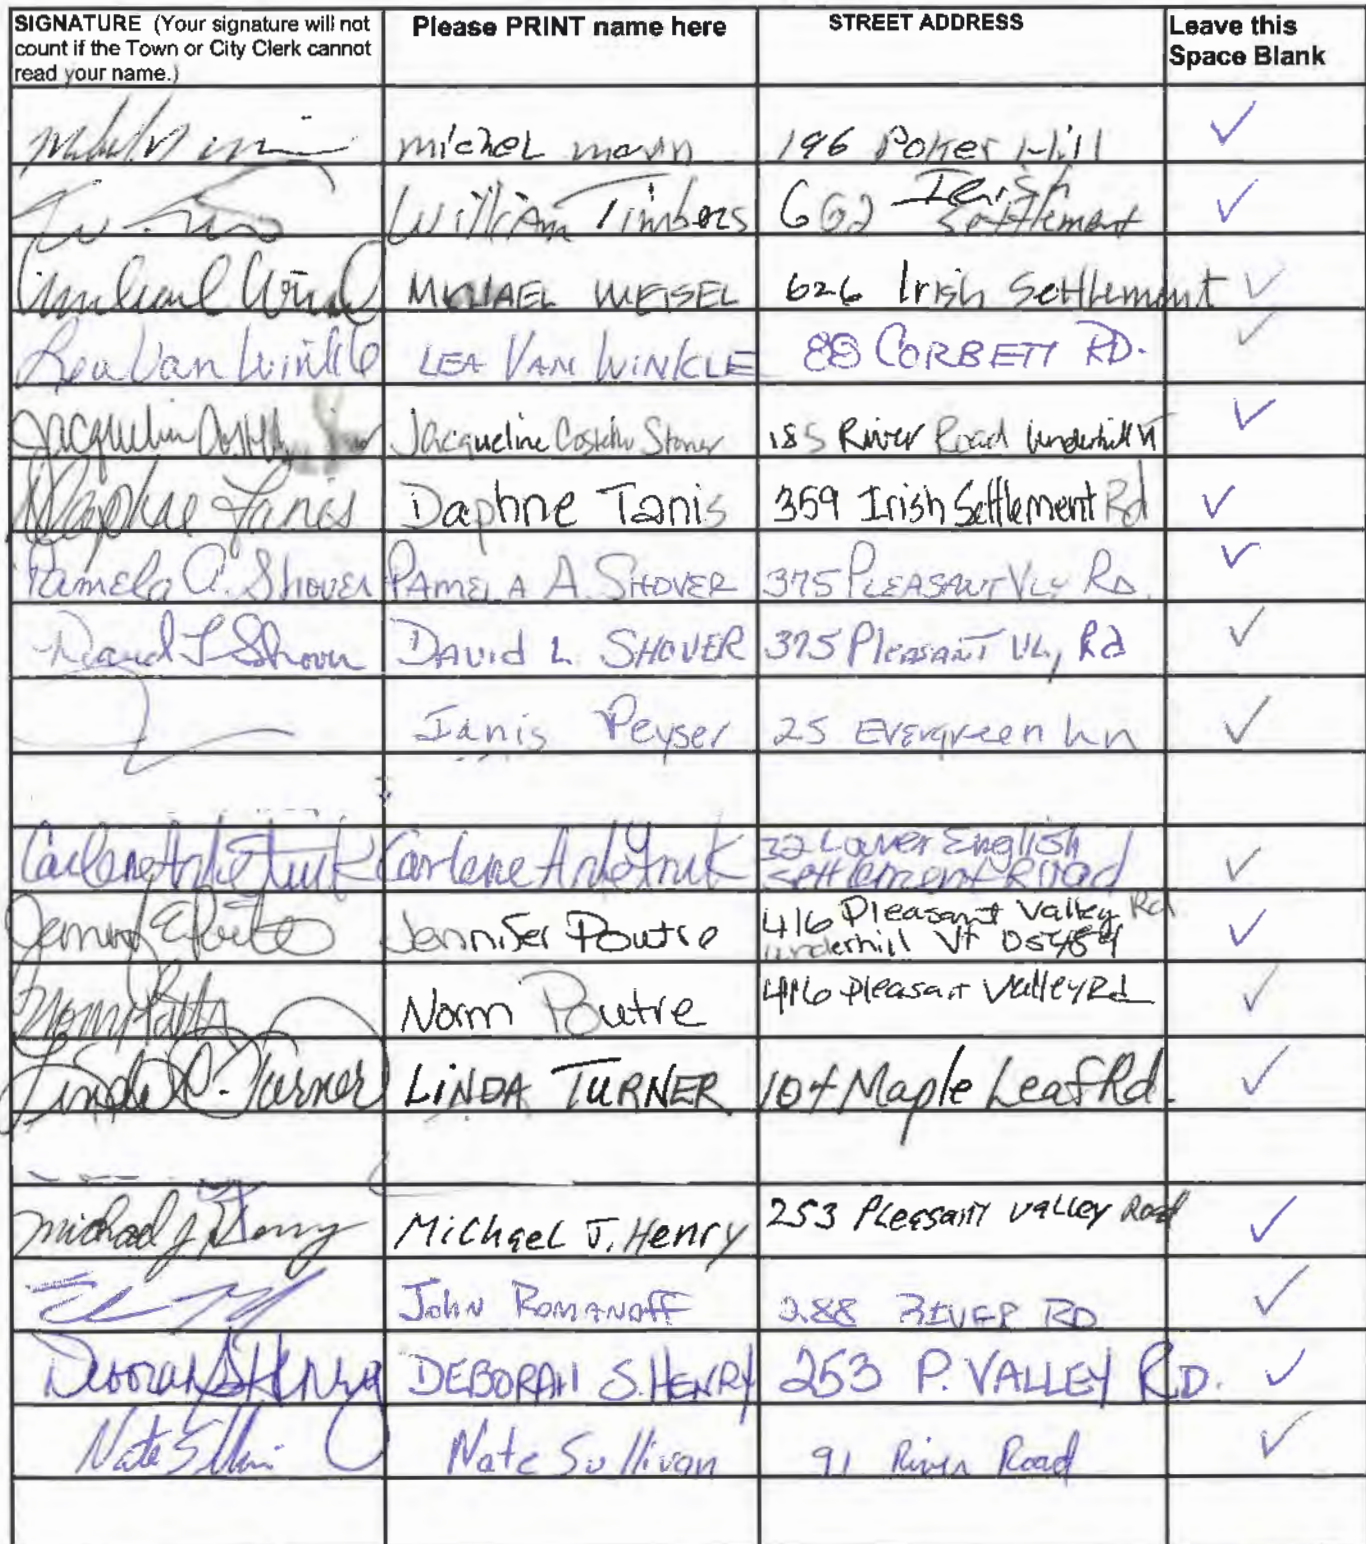 SIGNATURE (Your signature will not
count if the Town or City Clerk cannot
read your name.)
Please PRINT name here
STREET ADDRESS
Leave this
Space Blank
michel 196 Poker Hill
William Timbers 662 Irish
Settlement
MICHAEL WEISEL 626 Irish Settlement
Lea Van Winkle LEA VAN WINKLE 88 CORBETT RD.
Jacqueline Jacqueline Costello Stoner 185 River Road Underhill Vt
Daphne Tanis Daphne Tanis 359 Irish Settlement Rd
Pamela A. Shover PAMELA A. SHOVER 375 PLEASANT VLY RD.
David L Shover DAVID L. SHOVER 375 PLEASANT VL, Rd
Janis Peyser 25 Evergreen Ln
Carlene Carlene 32 Lower English
Settlement Road
Jennifer Poutre 416 Pleasant Valley Rd
underhill Vt 05489
Norm Poutre 416 Pleasant Valley Rd
Linda C. Turner LINDA TURNER 104 Maple Leaf Rd.
Michael J. Henry MichaeL J. Henry 253 Pleasant valley Road
John Romanoff 288 RIVER RD
Deborah S Henry DEBORAH S. HENRY 253 P. VALLEY RD.
Nate Sullivan Nate Sullivan 91 River Road